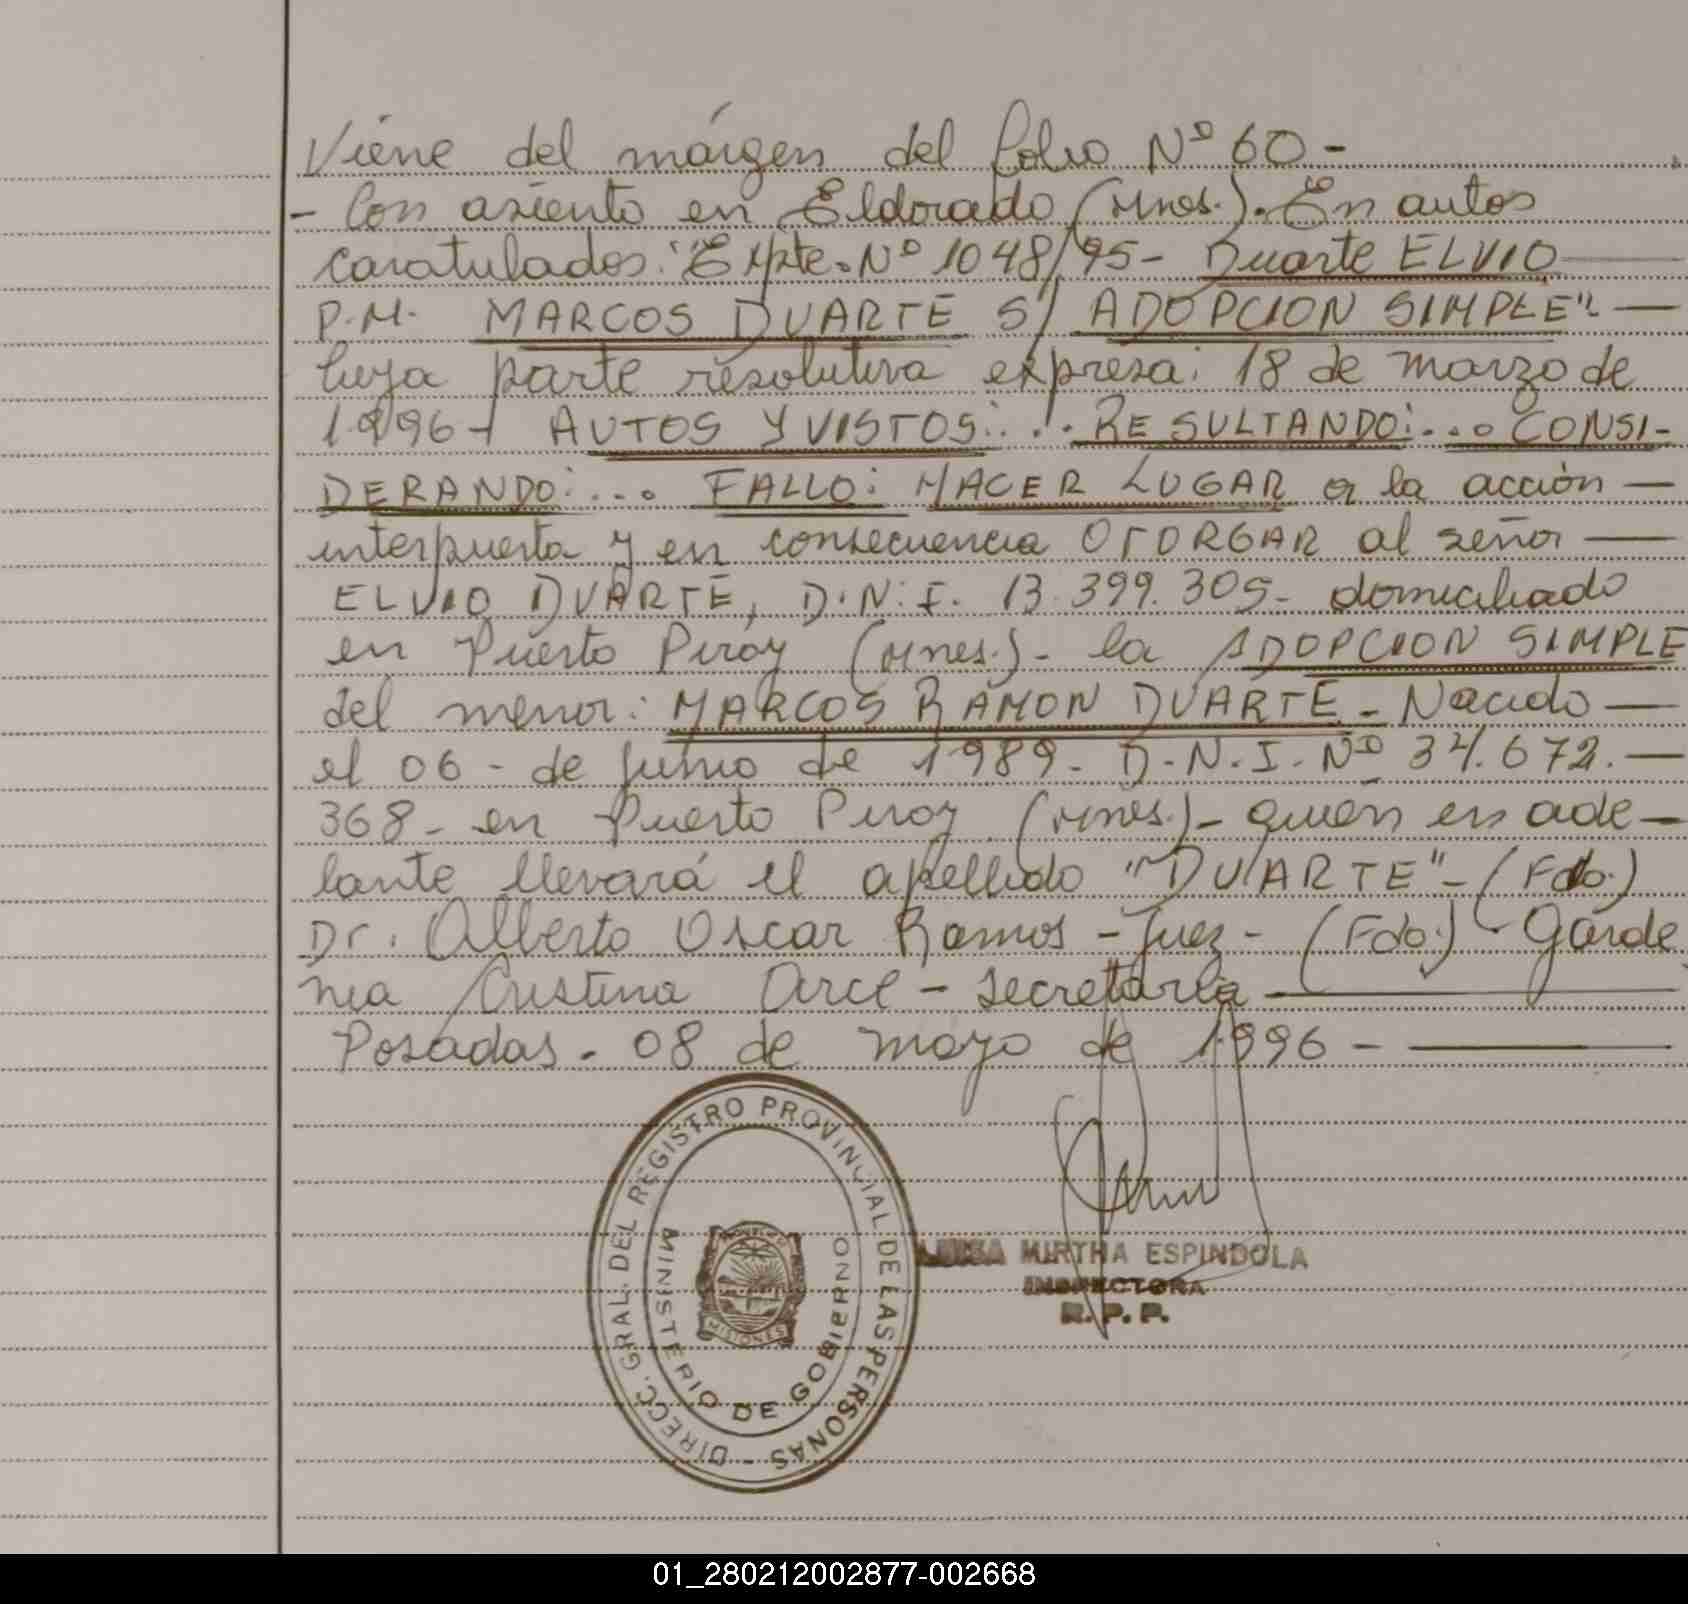 Viene del márgen del folio Nº 60 -
- Con asiento en Eldorado (Mnes.). En autos
caratulados: "Expte. Nº 1048/95 - Duarte ELVIO
P.M. MARCOS DUARTE S/ ADOPCION SIMPLE" —
Cuya parte resolutiva expresa: 18 de marzo de
1996 - AUTOS Y VISTOS: ... RESULTANDO: ... CONSI-
DERANDO: ... FALLO: HACER LUGAR a la acción —
interpuesta y en consecuencia OTORGAR al señor —
ELVIO DUARTE, D.N.I. 13.399.305 - domiciliado
en Puerto Piráy (Mnes.) - la ADOPCION SIMPLE
del menor: MARCOS RAMON DUARTE - Nacido —
el 06 - de junio de 1989 - D.N.I. Nº 34.672. —
368 - en Puerto Piray (Mnes.) - quien en ade -
lante llevará el apellido "DUARTE" - (Fdo.)
Dr. Alberto Oscar Ramos - Juez - (Fdo.) - Garde
nia Cristina Arce - Secretaria
Posadas - 08 de mayo de 1996 -
DIRECC. GRAL. DEL REGISTRO PROVINCIAL DE LAS PERSONAS -
MINISTERIO DE GOBIERNO
MISIONES
LUISA MIRTHA ESPINDOLA
INSPECTORA
R.P.P.
01_280212002877-002668